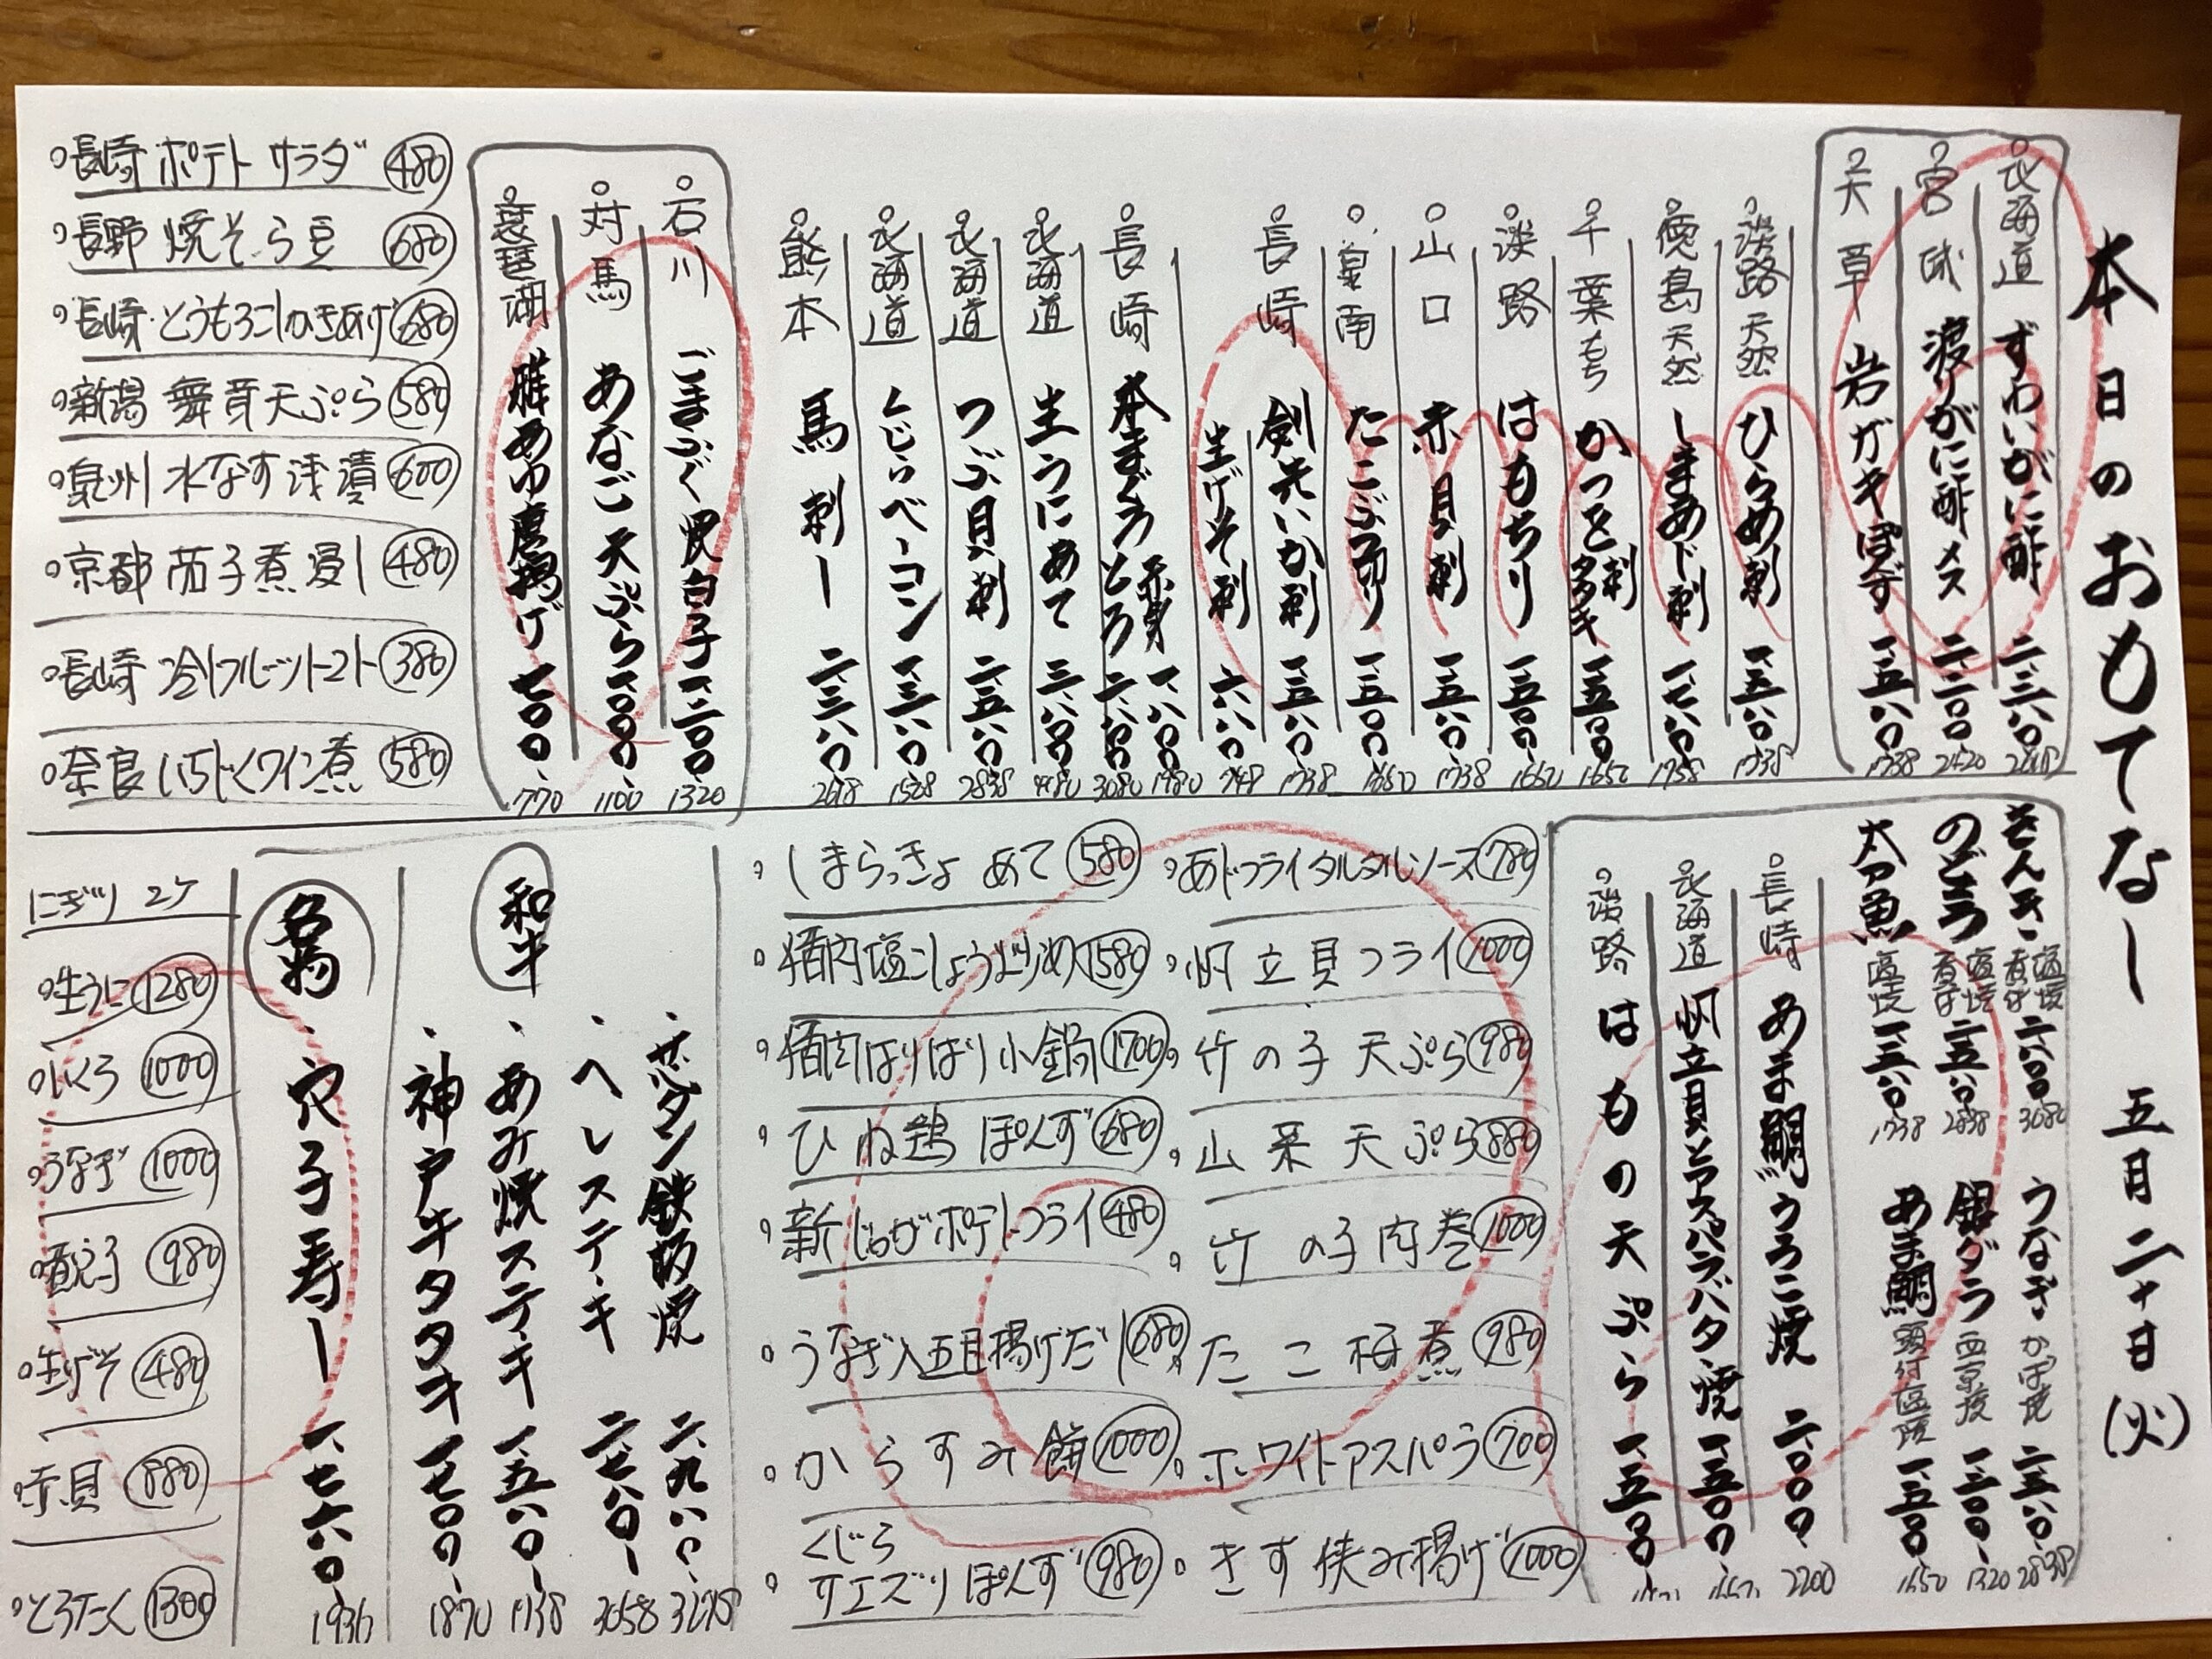 本日のおもてなし 五月二十日(火)
北海道 ずわいがに酢 二、三八〇 2618
宮城 渡りがに酢 メス 二、二〇〇 2420
天草 岩ガキぽんず 一、五八〇 1738
淡路 天然 ひらめ刺 一、五八〇 1738
徳島 天然 しまあじ刺
千葉 もち かつを刺 タタキ 一、五〇〇 1650
淡路 はもちり 一、五〇〇 1650
山口 赤貝刺 一、五八〇 1738
泉南 たこぶつ切り 一、五〇〇 1650
長崎 剣先いか刺 一、五八〇 1738
生げそ刺 六八〇 748
長崎 本まぐろ 赤身 一、八〇〇 1980
とろ 二、八〇〇 3080
北海道 生うにあて 三、八〇〇 4180
北海道 つぶ貝刺 二、五八〇 2838
北海道 くじらベーコン 一、三八〇 1518
熊本 馬刺し 二、三八〇 2618
石川 ごまふぐ 白子 一、二〇〇 1320
対馬 あなご天ぷら 一、〇〇〇 1100
琵琶湖 稚あゆ唐揚げ 七〇〇 770
長崎 ポテトサラダ 480
長野 焼そら豆 680
長崎 とうもろこしかきあげ 680
新潟 舞茸天ぷら 580
泉州 水なす浅漬 600
京都 茄子煮浸し 480
長崎 冷しフルーツトマト 380
奈良 いちじくワイン煮 580
きんき 塩焼 煮付 二、八〇〇 3080
のどぐろ 塩焼 煮付 二、五八〇 2838
太刀魚 塩焼 一、五八〇 1738
うなぎ かば焼 二、五八〇 2838
銀ダラ 西京焼 一、二〇〇 1320
あま鯛 頭付塩焼 一、五〇〇 1650
長崎 あま鯛うろこ焼 二、〇〇〇 2200
北海道 帆立貝とアスパラバター焼 一、五〇〇
淡路 はもの天ぷら 一、五〇〇
あじフライタルタルソース 780
帆立貝フライ 1000
竹の子天ぷら 980
山菜天ぷら 880
竹の子肉巻 1000
たこ梅煮 980
ホワイトアスパラ 700
きす挟み揚げ 1000
しまらっきょ あて 580
猪肉塩こしょう炒め 1580
猪肉はりはり小鍋 1700
ひね鶏 ぽんず 680
新じゃがポテトフライ 480
うなぎ入五目揚げだし 680
からすみ餅 1000
くじら
サエズリぽんず 980
和牛
サーロイン鉄板焼 二、九八〇 3278
ヘレステーキ 二、七八〇 3058
あみ焼ステーキ 一、五八〇 1738
神戸牛タタキ 一、七〇〇 1870
名物
穴子寿し 一、七六〇 1936
にぎり 2ケ
生うに 1280
いくら 1000
うなぎ 1000
煮穴子 980
生げそ 480
赤貝 880
とろたく 1300